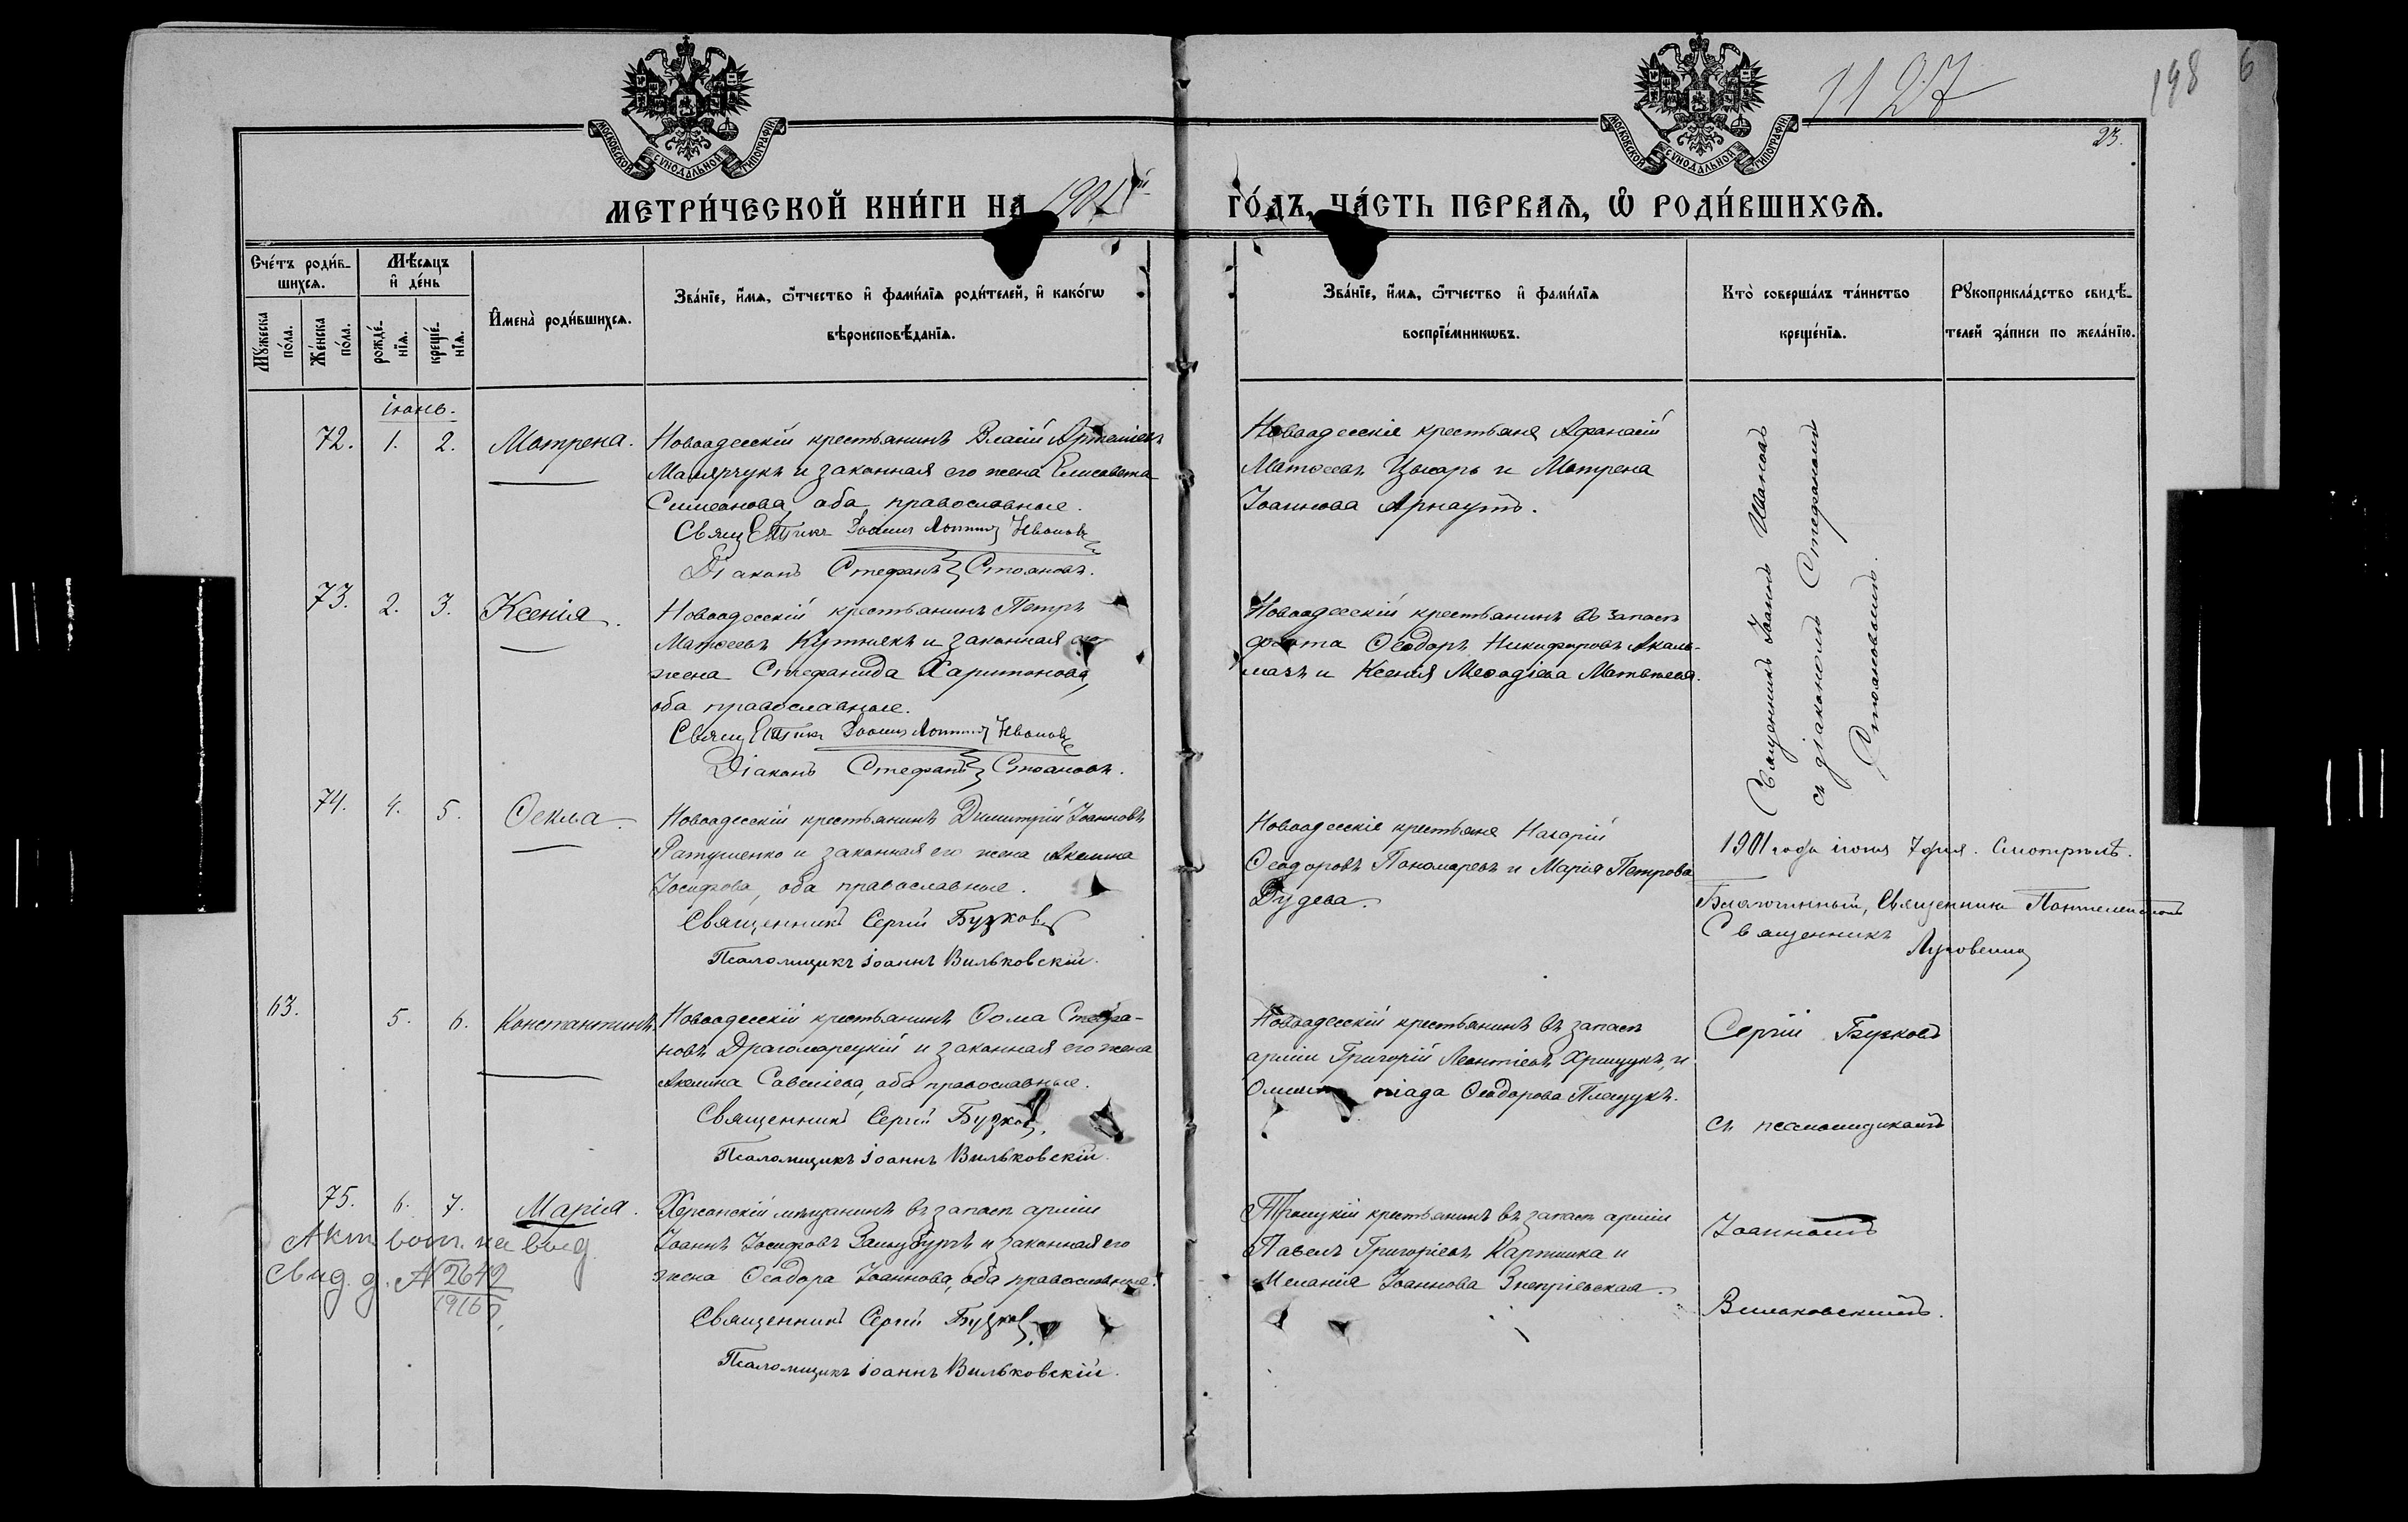 1127
198
6
23.
МОСКОВСКОЙ СѴНОДАЛЬНОЙ ТИПОГРАФІИ
МОСКОВСКОЙ СѴНОДАЛЬНОЙ ТИПОГРАФІИ
МЕТРИ́ЧЕСКОЙ КНИ́ГИ НА 1901й ГО́ДЪ, ЧА́СТЬ ПЕРВАѦ, Ѡ҆ РОДИ́ВШИХСѦ.
Сче́тъ роди́вшихсѧ.
Мѹ́жеска по́ла.
Же́нска по́ла.
Мѣ́сѧцъ и҆ де́нь
рожде́нїѧ.
креще́нїѧ.
И҆мена̀ роди́вшихсѧ.
Зва́нїе, и҆́мѧ, ѻ҆́тчество и҆ фами́лїѧ роди́телей, и҆ како́гѡ
вѣроисповѣ́данїѧ.
Зва́нїе, и҆́мѧ, ѻ҆́тчество и҆ фами́лїѧ
воспрїе́мникѡвъ.
Кто̀ соверша́лъ та́инство
креще́нїѧ.
Рꙋкоприкла́дство свидѣ́-
телей за́писи по жела́нїю.
іюнь.
72. 1. 2. Матрена. Новоодесскій крестьянинъ Власій Артеміевъ
Малярчукъ и законная его жена Елисавета
Симеонова, оба православные.
Діаконъ Стефанъ Стояновъ.
Новоодесскіе крестьяне Афанасій
Матѳеевъ Цысарь и Матрена
Іоаннова Арнаутъ.
Священникъ Іоаннъ Ивановъ
съ діакономъ Стефаномъ
Стояновымъ.
73. 2. 3. Ксенія. Новоодесскій крестьянинъ Петръ
Матѳеевъ Куртнякъ и законная его
жена Стефанида Харитонова,
оба православные.
Діаконъ Стефанъ Стояновъ.
Новоодесскій крестьянинъ въ запасѣ
флота Ѳеодоръ Никифоровъ Акаль-
мазъ и Ксенія Меѳодіева Матвѣева.
74. 4. 5. Ѳекла. Новоодесскій крестьянинъ Димитрій Іоанновъ
Ратушенко и законная его жена Акилина
Іосифова, оба православные.
Священникъ Сергій Бузковъ
Псаломщикъ Іоаннъ Вильковскій.
Новоодесскіе крестьяне Назарій
Ѳеодоровъ Пономаревъ и Марія Петрова
Дудева.
1901 года іюня 7 дня. Смотрѣлъ.
Благочинный, Священникъ Пантелеимонъ
Луговенко
63. 5. 6. Константинъ. Новоодесскій крестьянинъ Ѳома Стефа-
новъ Драгомарецкій и законная его жена
Акилина Савеліева, оба православные.
Священникъ Сергій Бузковъ,
Псаломщикъ Іоаннъ Вильковскій.
Новоодесскій крестьянинъ въ запасѣ
арміи Григорій Леонтіевъ Хрищукъ, и
Олимпіада Ѳеодорова Плащукъ.
Священникъ
Сергій Бузковъ
съ псаломщикомъ
Іоанномъ
Вильковскимъ.
75. 6. 7. Марія. Херсонскій мѣщанинъ въ запасѣ арміи
Іоаннъ Іосифовъ Зальцбургъ и законная его
жена Ѳеодора Іоаннова, оба православные.
Священникъ Сергій Бузковъ.
Псаломщикъ Іоаннъ Вильковскій.
Троицкій крестьянинъ въ запасѣ арміи
Павелъ Григоріевъ Карпинка и
Меланія Іоаннова
Свид. д. № 2649
1916